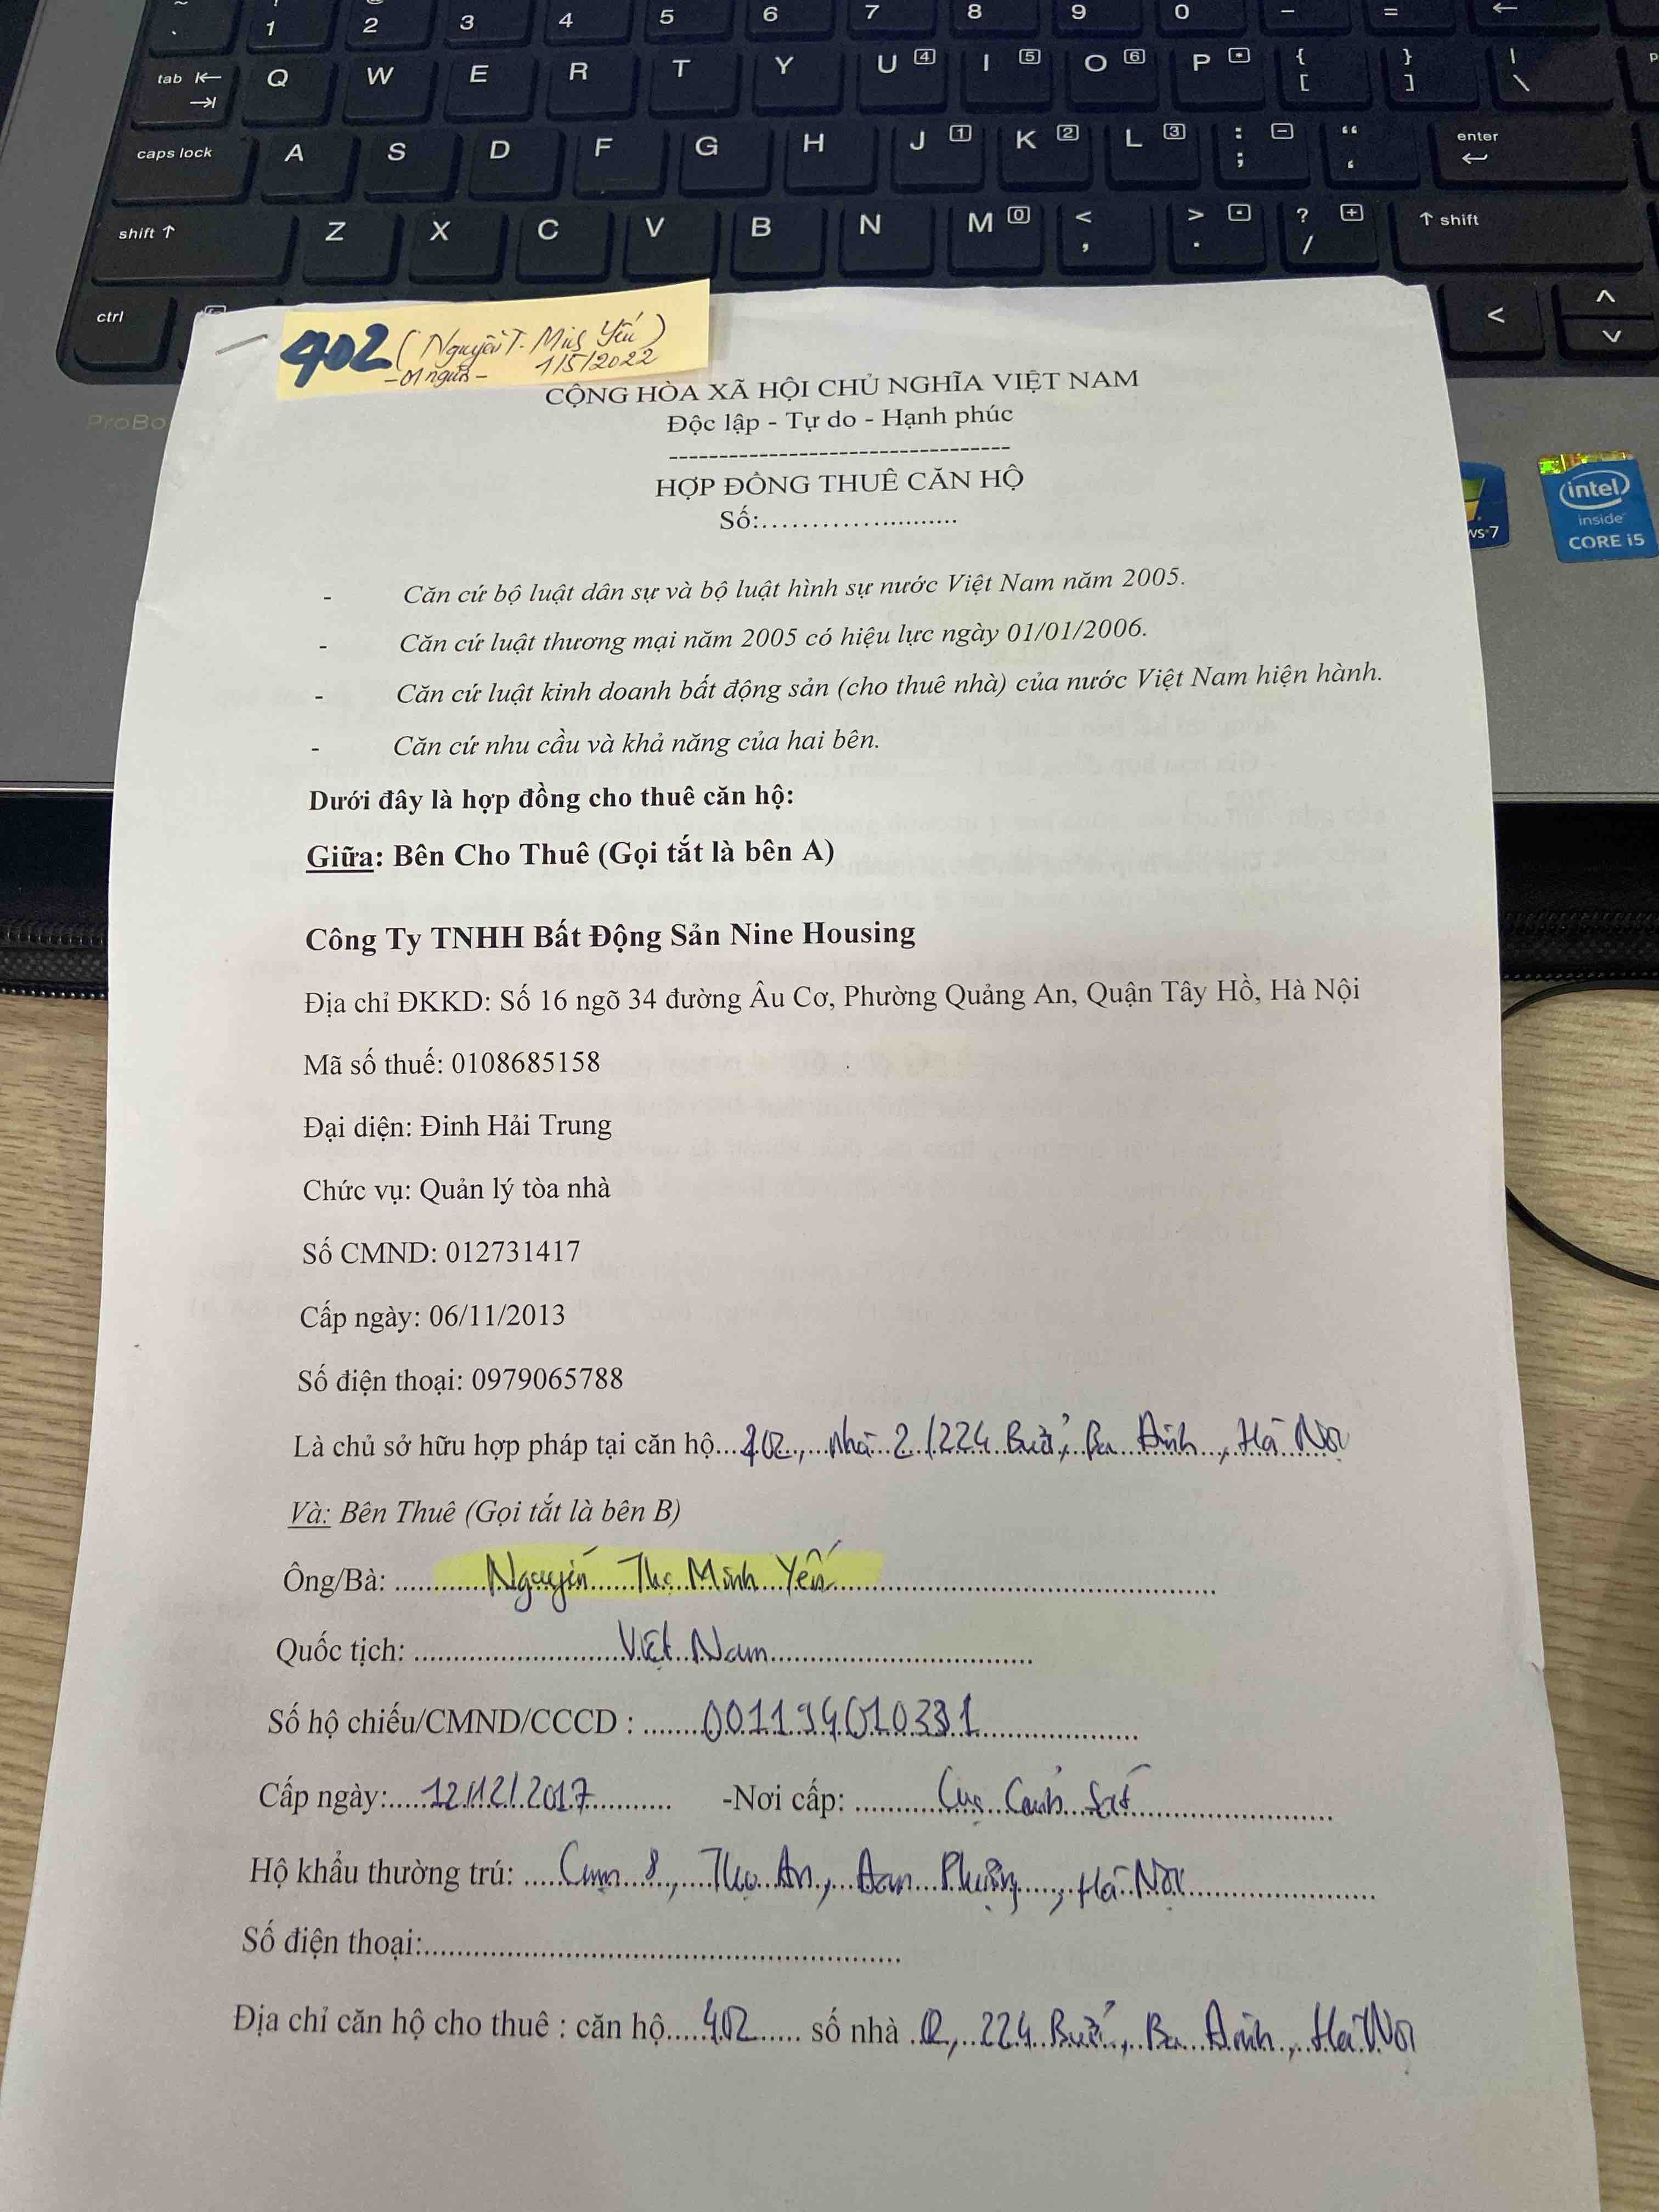 ~ ! @
` 1 2 3 4 5 6 7 8 9 0 - = ←
tab Q W E R T Y U 4 I 5 O 6 P * { [ } ] | \
caps lock A S D F G H J 1 K 2 L 3 : ; - “ ‘ enter
shift ↑ Z X C V B N M 0 < , > . ? / + ↑ shift
ctrl <
ProBo
402 (Nguyễn T. Minh Yến)
-01 người- 1/5/2022
CỘNG HÒA XÃ HỘI CHỦ NGHĨA VIỆT NAM
Độc lập - Tự do - Hạnh phúc
---------------------------------
HỢP ĐỒNG THUÊ CĂN HỘ
Số:......................
ws 7
intel
inside
CORE i5
- Căn cứ bộ luật dân sự và bộ luật hình sự nước Việt Nam năm 2005.
- Căn cứ luật thương mại năm 2005 có hiệu lực ngày 01/01/2006.
- Căn cứ luật kinh doanh bất động sản (cho thuê nhà) của nước Việt Nam hiện hành.
- Căn cứ nhu cầu và khả năng của hai bên.
Dưới đây là hợp đồng cho thuê căn hộ:
Giữa: Bên Cho Thuê (Gọi tắt là bên A)
Công Ty TNHH Bất Động Sản Nine Housing
Địa chỉ ĐKKD: Số 16 ngõ 34 đường Âu Cơ, Phường Quảng An, Quận Tây Hồ, Hà Nội
Mã số thuế: 0108685158
Đại diện: Đinh Hải Trung
Chức vụ: Quản lý tòa nhà
Số CMND: 012731417
Cấp ngày: 06/11/2013
Số điện thoại: 0979065788
Là chủ sở hữu hợp pháp tại căn hộ...402, nhà 2/224 Bưởi, Ba Đình, Hà Nội
Và: Bên Thuê (Gọi tắt là bên B)
Ông/Bà: ........Nguyễn Thị Minh Yến........
Quốc tịch: ........Việt Nam........
Số hộ chiếu/CMND/CCCD : ........001194010331........
Cấp ngày:.....12/12/2017........ -Nơi cấp: ........Cục Cảnh sát........
Hộ khẩu thường trú: .....Cụm 8, Thọ An, Đan Phượng, Hà Nội........
Số điện thoại:................................
Địa chỉ căn hộ cho thuê : căn hộ.....402...... số nhà .02, 224 Bưởi, Ba Đình, Hà Nội